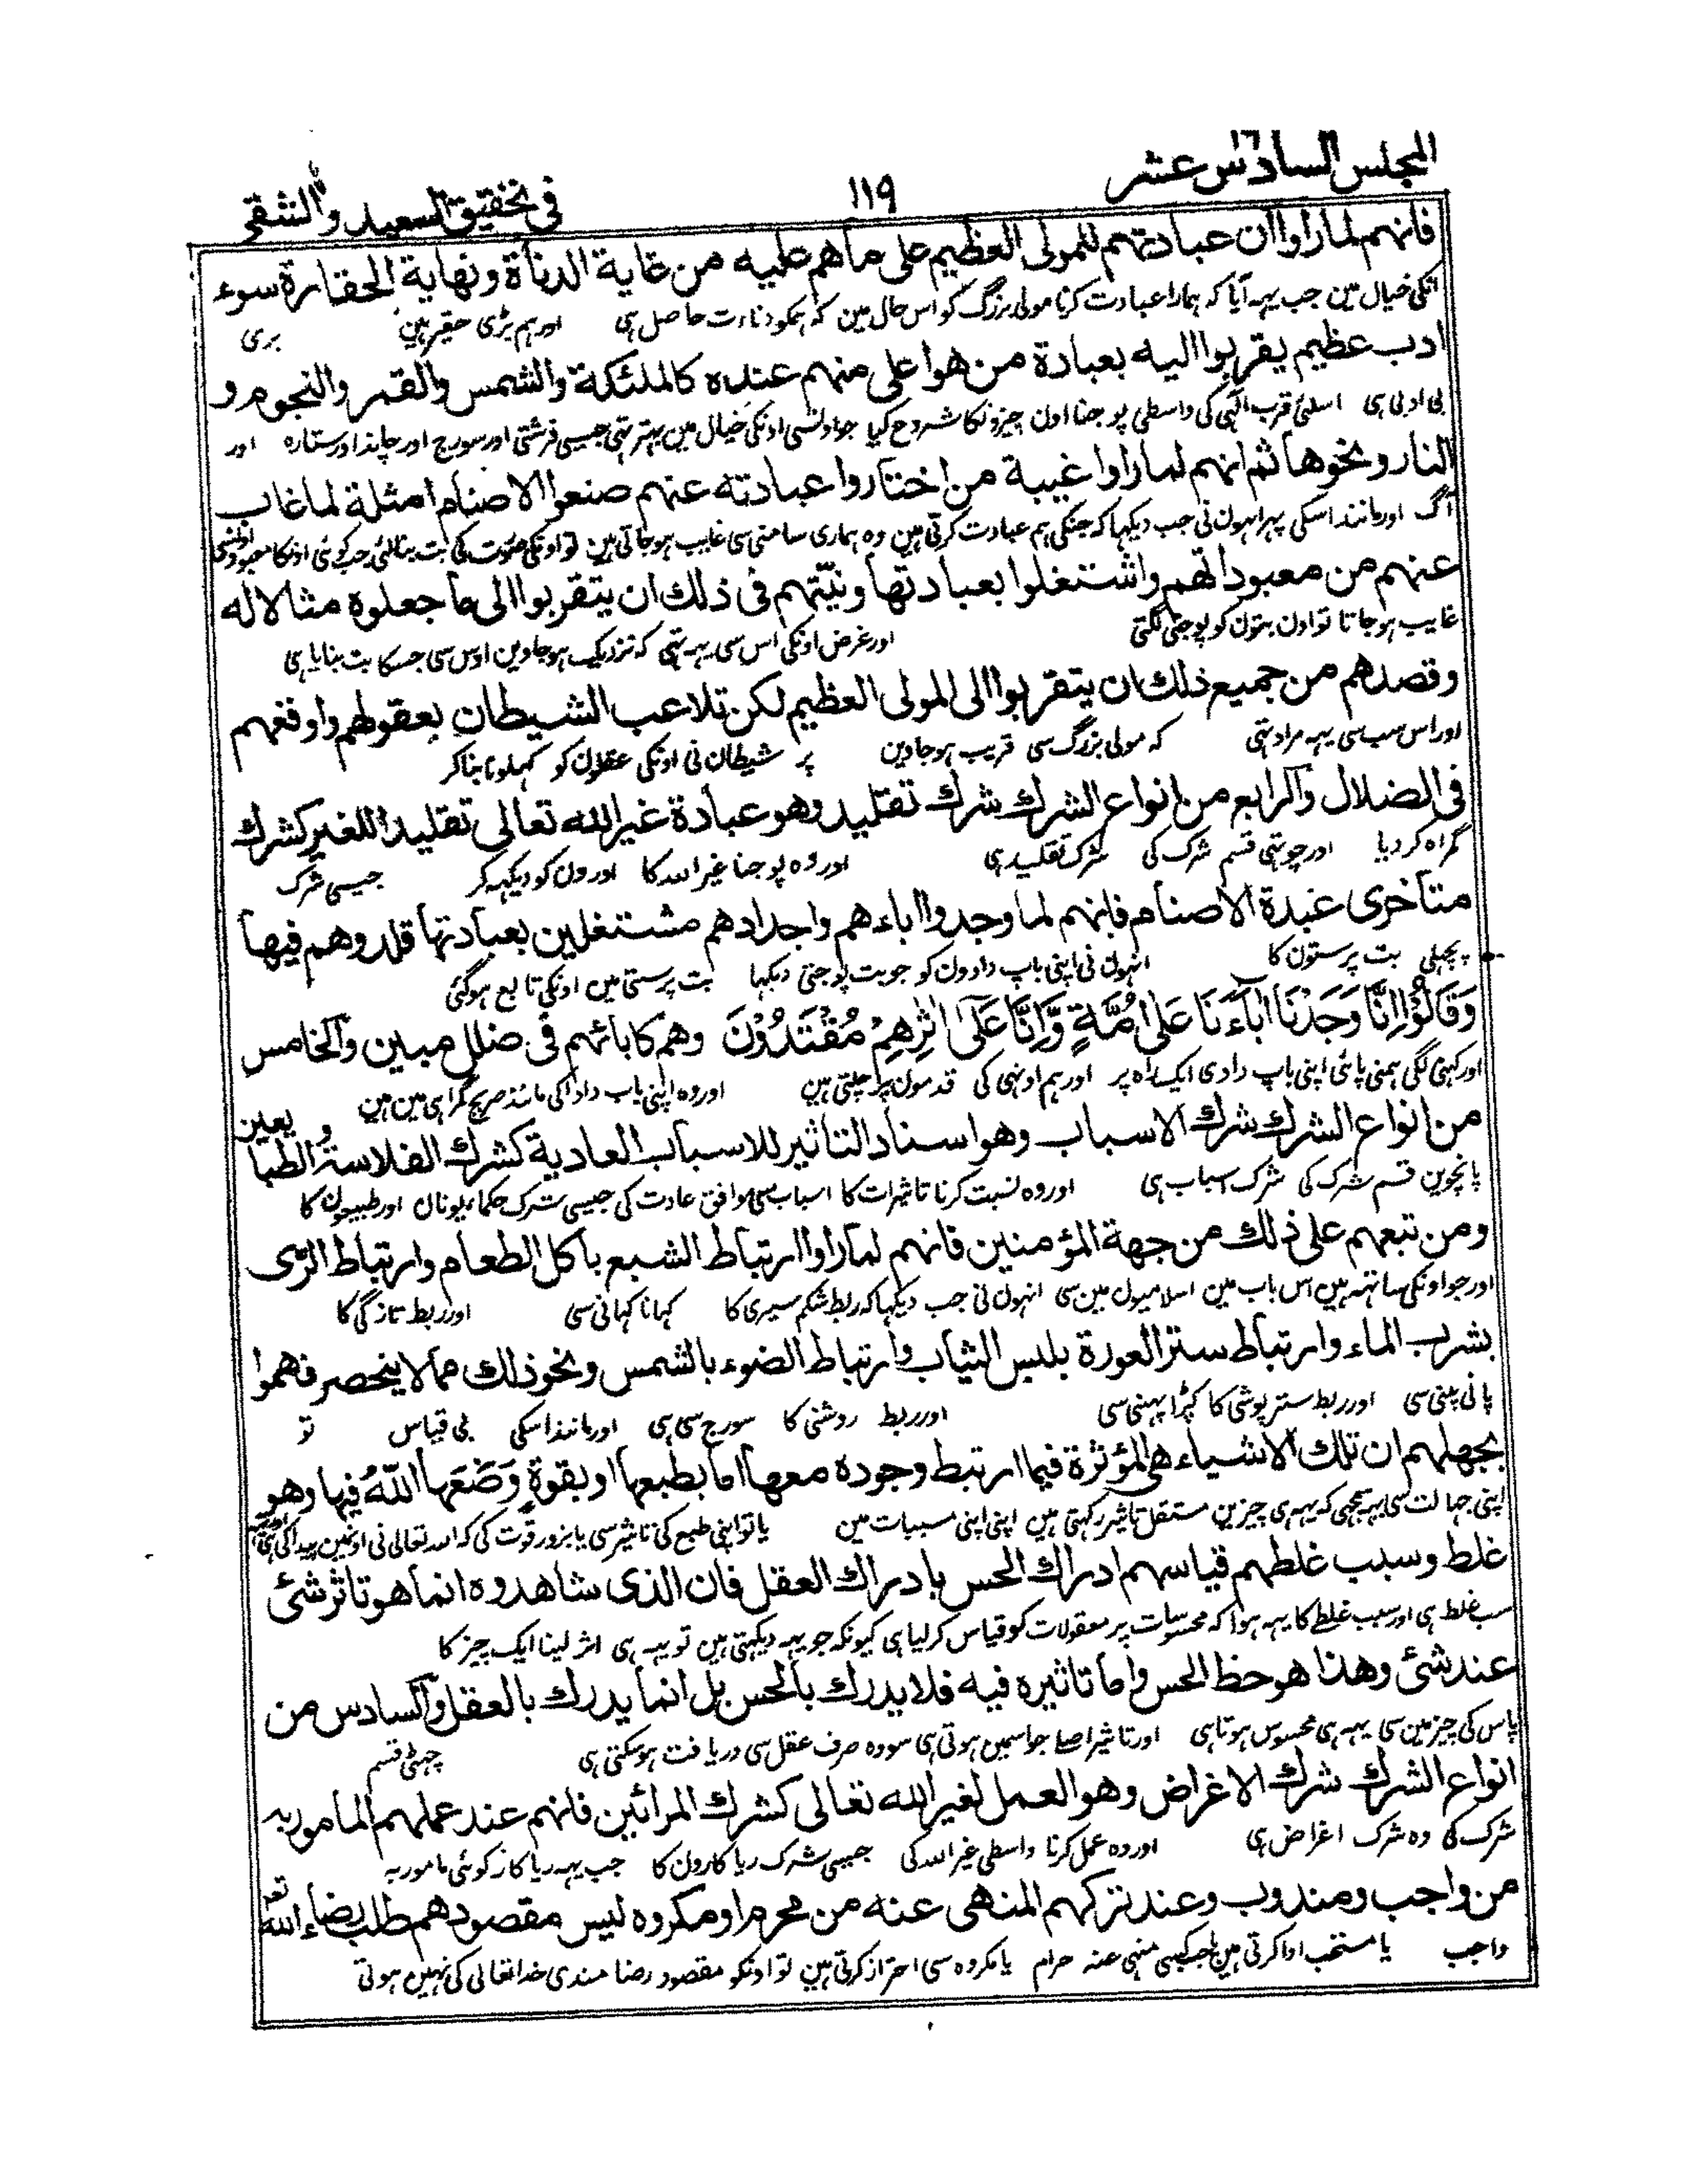 المجلس السادس عشر
١١٩
فى تحقيق السعيد والشقى
فانهم لما راوا ان عبادتهم للمولى العظيم على ما هم عليه من غاية الدنأة ونهاية الحقارة سوء
انکی خیال مین جب یہہ آیا کہ ہمارا عبادت کرنا مولی بزرگ کو اس حال مین کہ ہمکو دناءت حاصل ہی اور ہم بڑی حقیر ہین بری
ادب عظيم يقربوا اليه بعبادة من هو اعلى منهم عنده كالملئكة والشمس والقمر والنجوم و
بی ادبی ہی اسلئی قرب الٰہی کی واسطی پوجنا اون چیزونکا شروع کیا جو اونسی اونکی خیال مین بہتر تہی جیسی فرشتی اور سورج اور چاند اور ستارہ اور
النار ونحوها ثم انهم لما راوا غيبة من اختاروا عبادته عنهم صنعوا الاصنام امثلة لما غاب
آگ اور مانند اسکی پہر انہون نی جب دیکہا کہ جنکی ہم عبادت کرتی ہین وہ ہماری سامنی سی غایب ہوجاتی ہین تو اونکی صورت کی بت بنالئی جب کوئی اونکا معبود اونسی
عنهم من معبوداتهم واشتغلوا بعبادتها ونيّتهم فى ذلك ان يتقربوا الى ما جعلوه مثالا له
غایب ہوجاتا تو اون بتون کو پوجنی لگتی اور غرض اونکی اس سی یہہ تہی کہ نزدیک ہوجاوین اوس سی جسکا بت بنایا ہی
وقصدهم من جميع ذلك ان يتقربوا الى المولى العظيم لكن تلاعب الشيطان بعقولهم واوقعهم
اور اس سب سی یہہ مراد تہی کہ مولی بزرگ سی قریب ہوجاوین پر شیطان نی اونکی عقلون کو کہلونا بناکر
فى الضلال والرابع من انواع الشرك شرك تقليد وهو عبادة غير الله تعالى تقليدا للغير كشرك
گمراہ کردیا اور چوتہی قسم شرک کی شرک تقلید ہی اور وہ پوجنا غیر اللہ کا اورون کو دیکہہ کر جیسی شرک
متاخرى عبدة الاصنام فانهم لما وجدوا اباءهم واجدادهم مشتغلين بعبادتها قلدوهم فيها
پچہلی بت پرستون کا انہون نی اپنی باپ دادون کو جو بت پوجتی دیکہا بت پرستی مین اونکی تابع ہوگئی
وَقَالُوْا اِنَّا وَجَدْنَا اٰبَآءَنَا عَلٰى اُمَّةٍ وَّاِنَّا عَلٰى اٰثٰرِهِمْ مُقْتَدُوْنَ وهم كابائهم فى ضلل مبين والخامس
اور کہنی لگی ہمنی پائی اپنی باپ دادی ایک راہ پر اور ہم اونہی کی قدمون پر چلتی ہین اور وہ اپنی باپ داداکی مانند صریح گمراہی مین ہین
من انواع الشرك شرك الاسباب وهو اسناد التاثير للاسباب العادية كشرك الفلاسفة والطبا يعين
پانچوین قسم شرک کی شرک اسباب ہی اور وہ نسبت کرنا تاثیرات کا اسباب سی موافق عادت کی جیسی شرک حکماء یونان اور طبیعیون کا
ومن تبعهم على ذلك من جهة المؤمنين فانهم لما راوا ارتباط الشبع باكل الطعام وارتباط الرّى
اور جو اونکی ساتہہ ہین اس باب مین اسلامیون مین سی انہون نی جب دیکہا کہ ربط شکم سیری کا کہانا کہانی سی اور ربط تازگی کا
بشرب الماء وارتباط ستر العورة بلبس الثياب وارتباط الضوء بالشمس ونحو ذلك مما لا ينحصر فهموا
پانی پینی سی اور ربط ستر پوشی کا کپڑا پہننی سی اور ربط روشنی کا سورج سی ہی اور مانند اسکی بی قیاس تو
بجهلهم ان تلك الاشياء هى المؤثرة فيما ارتبط وجوده معها اما بطبعها او بقوةٍ وَضَعَها اللّٰهُ فيها وهو
اپنی جہالت سی یہہ سمجہی کہ یہہ ہی چیزین مستقل تاثیر رکہتی ہین اپنی اپنی مسببات مین یا تو اپنی طبع کی تاثیر سی یا بزور قوت کی کہ اللہ تعالی نی اونمین پیدا کی ہی
غلط وسبب غلطهم قياسهم ادراك الحس بادراك العقل فان الذى شاهدوه انما هو تاثر شئ
سب غلط ہی اور سبب غلط کا یہہ ہوا کہ محسوسات پر معقولات کو قیاس کرلیا ہی کیونکہ جو یہہ دیکہتی ہین تو یہہ ہی اثر لینا ایک چیز کا
عند شئ وهذا هو حظ الحس واما تاثيره فيه فلا يدرك بالحس بل انما يدرك بالعقل والسادس من
پاس کی چیز مین سی یہہ ہی محسوس ہوتا ہی اور تاثیر اصل جو اسمین ہوتی ہی سو وہ صرف عقل سی دریافت ہوسکتی ہی چہٹی قسم
انواع الشرك شرك الاغراض وهو العمل لغير الله تعالى كشرك المرائين فانهم عند عملهم المامور به
شرک کی وہ شرک اغراض ہی اور وہ عمل کرنا واسطی غیر اللہ کی جیسی شرک ریاکارون کا جب یہہ ریاکار کوئی مامور بہ
من واجب ومندوب وعند تركهم المنهى عنه من محرم او مكروه ليس مقصودهم طلب رضاء الله تعه
واجب یا مستحب ادا کرتی ہین یا جب کبہی منہی عنہ حرام یا مکروہ سی احتراز کرتی ہین تو اونکو مقصود رضا مندی خدا تعالی کی نہین ہوتی